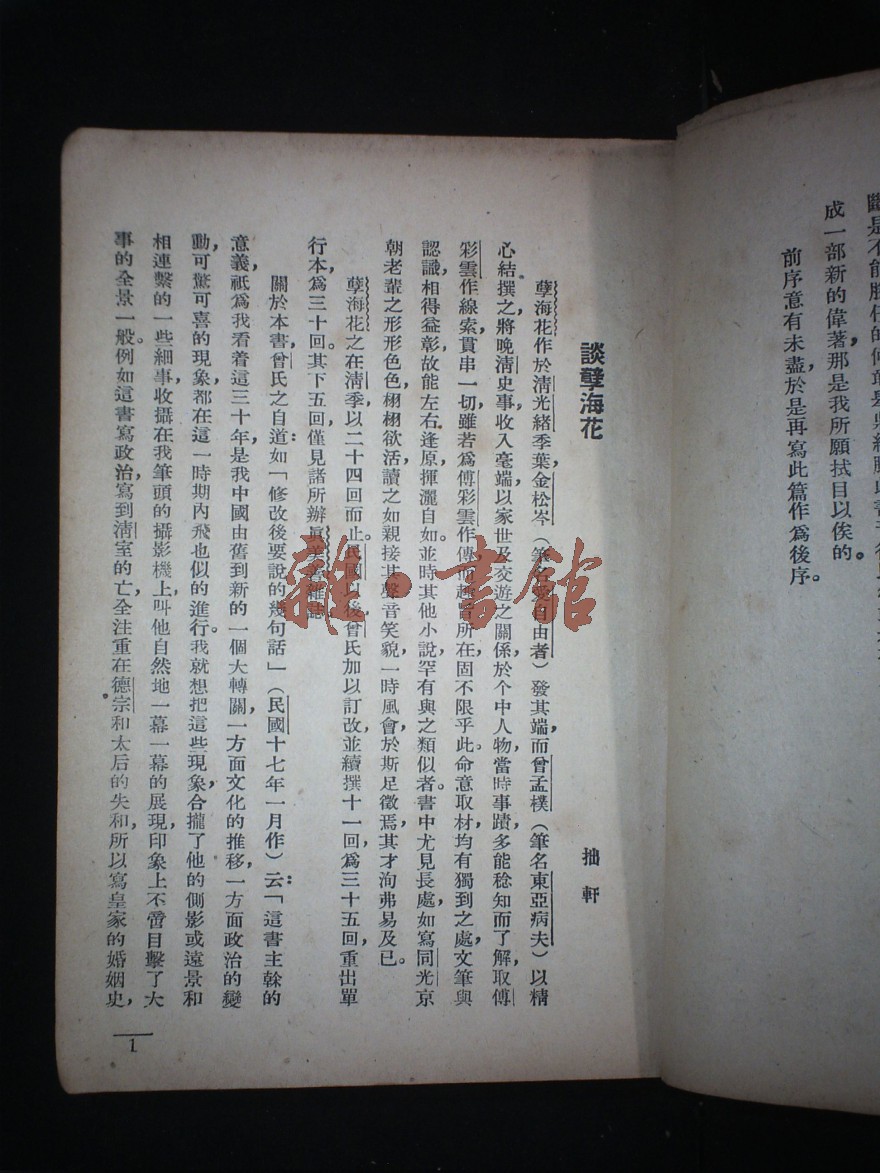 成一部新的偉著那是我所願拭目以俟的。
前序意有未盡於是再寫此篇作爲後序。
談孽海花
拙軒
孽海花作於清光緒季葉，金松岑（筆名愛自由者）發其端，而曾孟樸（筆名東亞病夫）以精
心結撰之，將晚清史事收入毫端，以家世及交遊之關係，於个中人物，當時事蹟，多能稔知而了解，取傅
彩雲作線索，貫串一切，雖若爲傅彩雲作傳，而趣旨所在，固不限乎此。命意取材，均有獨到之處，文筆與
認識，相得益彰，故能左右逢原，揮灑自如。並時其他小說，罕有與之類似者。書中尤見長處，如寫同光京
朝老輩之形形色色，栩栩欲活，讀之如親接其聲音笑貌，一時風會，於斯足徵焉，其才洵弗易及已。
孽海花之在清季，以二十四回而止。民國以後，曾氏加以訂改，並續撰十一回，爲三十五回，重出單
行本爲三十回。其下五回，僅見諸所辦眞美善雜誌。
關於本書，曾氏之自道：如「修改後要說的幾句話」（民國十七年一月作）云：「這書主幹的
意義，祇爲我看着這三十年，是我中國由舊到新的一個大轉關，一方面文化的推移，一方面政治的變
動，可驚可喜的現象，都在這一時期內飛也似的進行。我就想把這些現象，合攏了他的側影或遠景和
相連繫的一些細事，收攝在我筆頭的攝影機上，叫他自然地一幕一幕的展現，印象上不啻目擊了大
事的全景一般。例如：這書寫政治，寫到清室的亡，全注重在德宗和太后的失和，所以寫皇家的婚姻史，
1
雜·書館